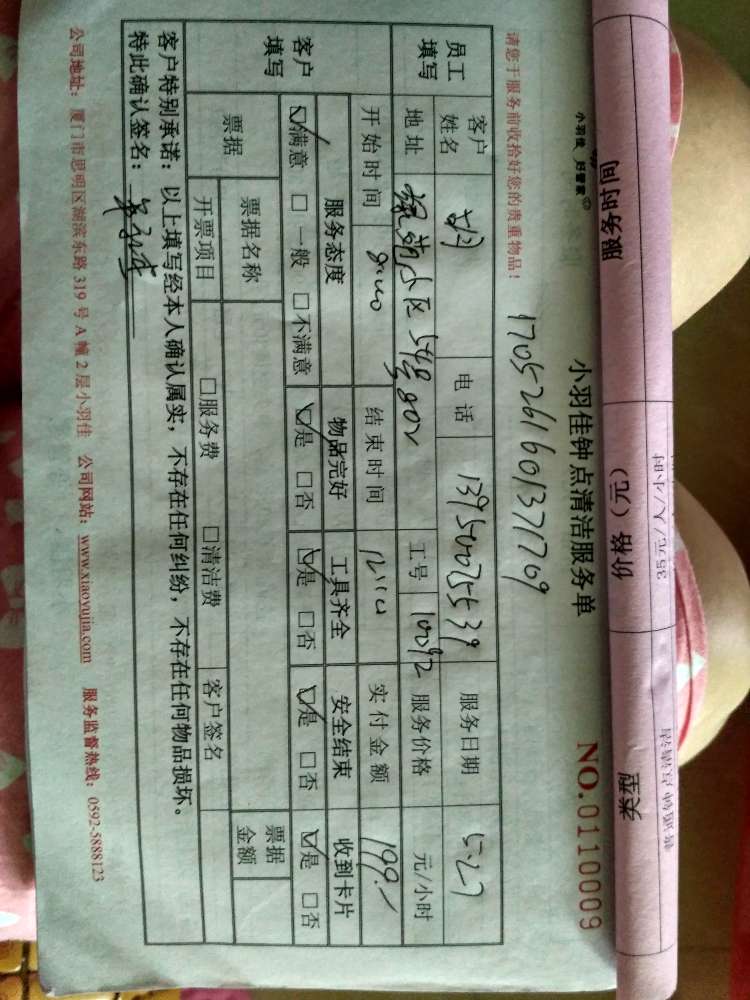 服务时间 价格（元） 类型
35元/人/小时
小羽佳 好管家
小羽佳钟点清洁服务单
NO.0110009
请您于服务前收拾好您的贵重物品！
1705261601371709
员工填写
客户姓名 电话 13950035539 服务日期 5.27
地址 小区54号802 工号 10092 服务价格 元/小时
开始时间 8:00 结束时间 12:10 实付金额 199.
客户填写
服务态度 物品完好 工具齐全 安全结束 收到卡片
☑满意 □一般 □不满意 ☑是 □否 ☑是 □否 ☑是 □否 ☑是 □否
票据 票据名称 票据金额
开票项目 □服务费 □清洁费 客户签名
客户特别承诺：以上填写经本人确认属实，不存在任何纠纷，不存在任何物品损坏。
特此确认签名：
公司地址：厦门市思明区湖滨东路319号A幢2层小羽佳 公司网站：www.xiaoyujia.com 服务监督热线：0592-5888123